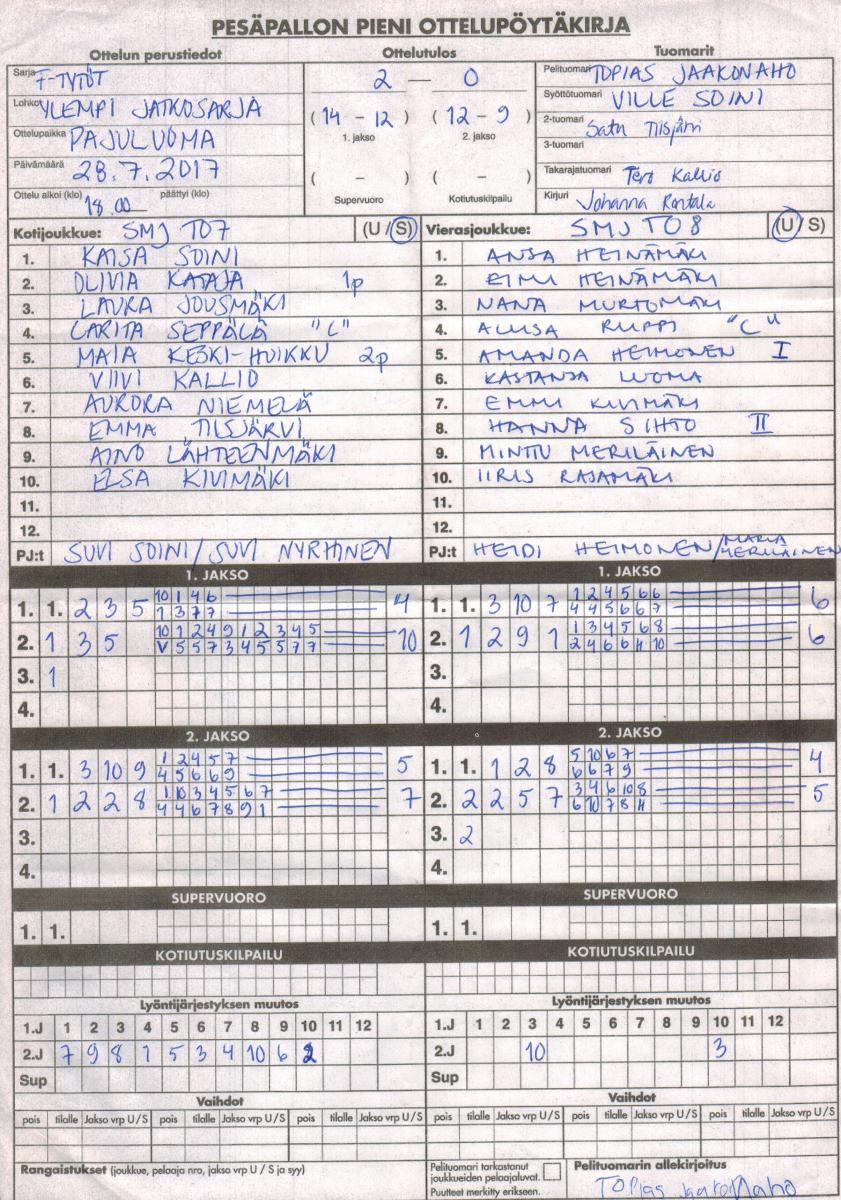 PESÄPALLON PIENI OTTELUPÖYTÄKIRJA
Ottelun perustiedot
Sarja F-TYTÖT
Lohko YLEMPI JATKOSARJA
Ottelupaikka PAJULUOMA
Päivämäärä 28.7.2017
Ottelu alkoi (klo) 18.00 päättyi (klo)
Ottelutulos
2 — 0
(14 - 12) (12 - 9)
1. jakso 2. jakso
( – ) ( – )
Supervuoro Kotiutuskilpailu
Tuomarit
Pelituomari TOPIAS JAAKONAHO
Syöttötuomari VILLE SOINI
2-tuomari Satu Tiisjärvi
3-tuomari
Takarajatuomari Tero Kallio
Kirjuri Johanna Rantala
Kotijoukkue: SMJ T07 (U / S)
1. KAISA SOINI
2. OLIVIA KATAJA 1p
3. LAURA JOUSMÄKI
4. CARITA SEPPÄLÄ "C"
5. MAIA KESKI-HUIKKU 2p
6. VIIVI KALLIO
7. AURORA NIEMELÄ
8. EMMA TIISJÄRVI
9. AINO LÄHTEENMÄKI
10. ELSA KIVIMÄKI
11.
12.
PJ:t SUVI SOINI / SUVI NYRHINEN
Vierasjoukkue: SMJ T08 (U / S)
1. ANSA HEINÄMÄKI
2. EIMI HEINÄMÄKI
3. NANA MURTOMÄKI
4. ALIISA RUPPI "C"
5. AMANDA HEIMONEN I
6. KASTANJA LUOMA
7. EMMI KIVIMÄKI
8. HANNA SIHTO II
9. MINTTU MERILÄINEN
10. IIRIS RAJAMÄKI
11.
12.
PJ:t HEIDI HEIMONEN / MARIA MERILÄINEN
1. JAKSO
1. 1. 2 3 5 10 1 4 6 4
1 3 7 7
2. 1 3 5 10 1 2 4 9 1 2 3 4 5 10
V 5 5 7 3 4 5 5 7 7
3. 1
4.
1. JAKSO
1. 1. 3 10 7 1 2 4 5 6 6 6
4 4 5 6 6 7
2. 1 2 9 1 1 3 4 5 6 8 6
2 4 6 6 H 10
3.
4.
2. JAKSO
1. 1. 3 10 9 1 2 4 5 7 5
4 5 6 6 9
2. 1 2 2 8 1 10 3 4 5 6 7 7
4 4 6 7 8 9 1
3.
4.
2. JAKSO
1. 1. 1 2 8 5 10 6 7 4
6 6 7 9
2. 2 2 5 7 3 4 6 10 8 5
6 10 7 8 H
3. 2
4.
SUPERVUORO
1. 1.
SUPERVUORO
1. 1.
KOTIUTUSKILPAILU
KOTIUTUSKILPAILU
Lyöntijärjestyksen muutos
1.J 1 2 3 4 5 6 7 8 9 10 11 12
2.J 7 9 8 1 5 3 4 10 6 2
Sup
Lyöntijärjestyksen muutos
1.J 1 2 3 4 5 6 7 8 9 10 11 12
2.J 10 3
Sup
Vaihdot
pois tilalle Jakso vrp U / S pois tilalle Jakso vrp U / S pois tilalle Jakso vrp U / S
Vaihdot
pois tilalle Jakso vrp U / S pois tilalle Jakso vrp U / S pois tilalle Jakso vrp U / S
Rangaistukset (joukkue, pelaaja nro, jakso vrp U / S ja syy)
Pelituomari tarkastanut
joukkueiden pelaajaluvat.
Puutteet merkitty erikseen.
Pelituomarin allekirjoitus
Topias Jaakonaho